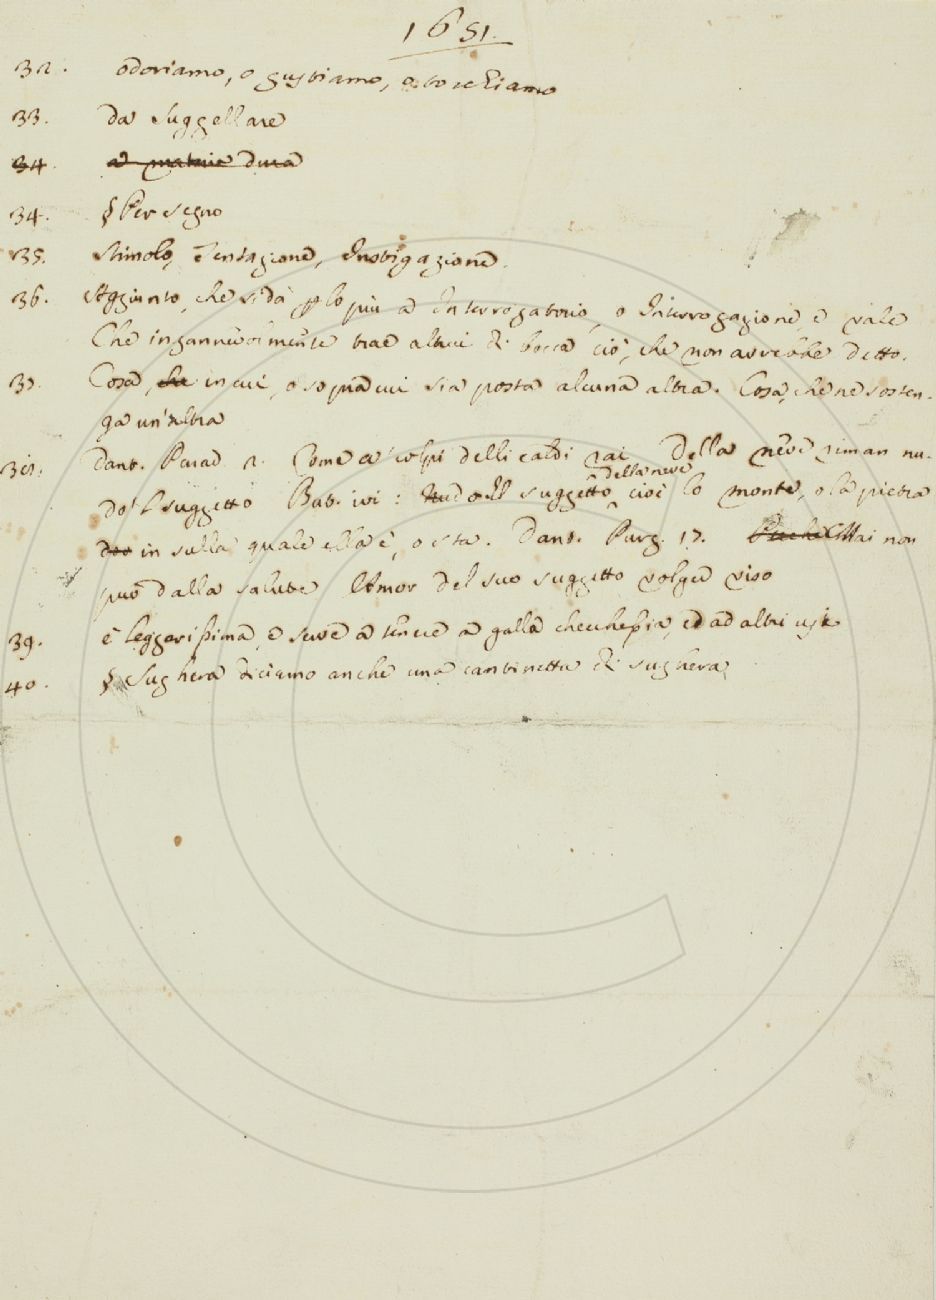 1651.
32. odoriamo, o gustiamo, o tocchiamo
33. da suggellare
34. a materia dura
34. § Per segno
35. Stimolo, Tentazione, Instigazione.
36. Aggiunto, che si dà p lo più a Interrogatorio, o Interrogazione, e vale
Che ingannevolmente trae altrui di bocca ciò, che non avrebbe detto.
37. Cosa, in cui, o sopra cui sia posta alcuna altra. Cosa, che ne sosten-
ga un'altra
38. Dant. Parad. 2. Come a' colpi delli caldi rai Della neve riman nu-
do 'l suggetto But. ivi: Il suggetto della neve, cioè lo monte, o la pietra
in sulla quale ella è, o sta. Dant. Purg. 17. Mai non
può dalla salute Amor del suo suggetto volger viso
39. è leggerissima, e serve a tenere a galla checchessia, ed ad altri usi
40. § Sughera diciamo anche una cantinetta di sughera